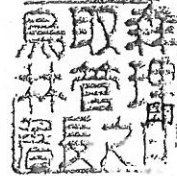 鳥取
林管理
區長之印